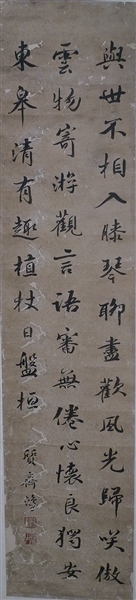 與世不相入膝琴聊盡歡風光歸咲傲
雲物寄游觀言語審無倦心懷良獨安
東皋清有趣植杖日盤桓